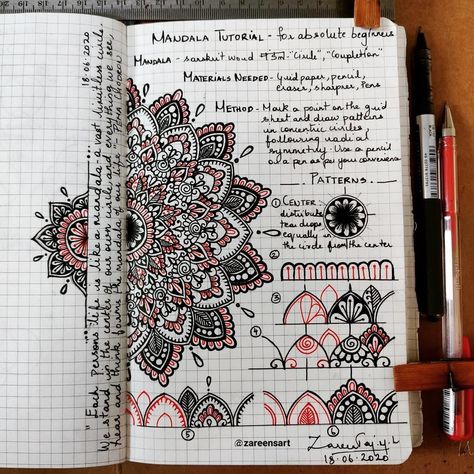 18.06.2020
"Each persons life is like a mandala - a vast, limitless circle.
We stand in the center of our own circle and everything we see,
hear and think forms the mandala of our life" - Pema Chodron
MANDALA TUTORIAL - for absolute beginners
MANDALA - sanskrit word "Circle", "Completion"
MATERIALS NEEDED - grid paper, pencil,
eraser, sharpner, Pens
METHOD - Mark a point on the grid
sheet and draw patterns
in concentric circles
following radial
symmetry. Use a pencil
or a pen as per your convenience
PATTERNS
① CENTER :
distribute
tear drops
equally in
the circle from the center
2
3
4
5
6
@zareensart
18.06.2020